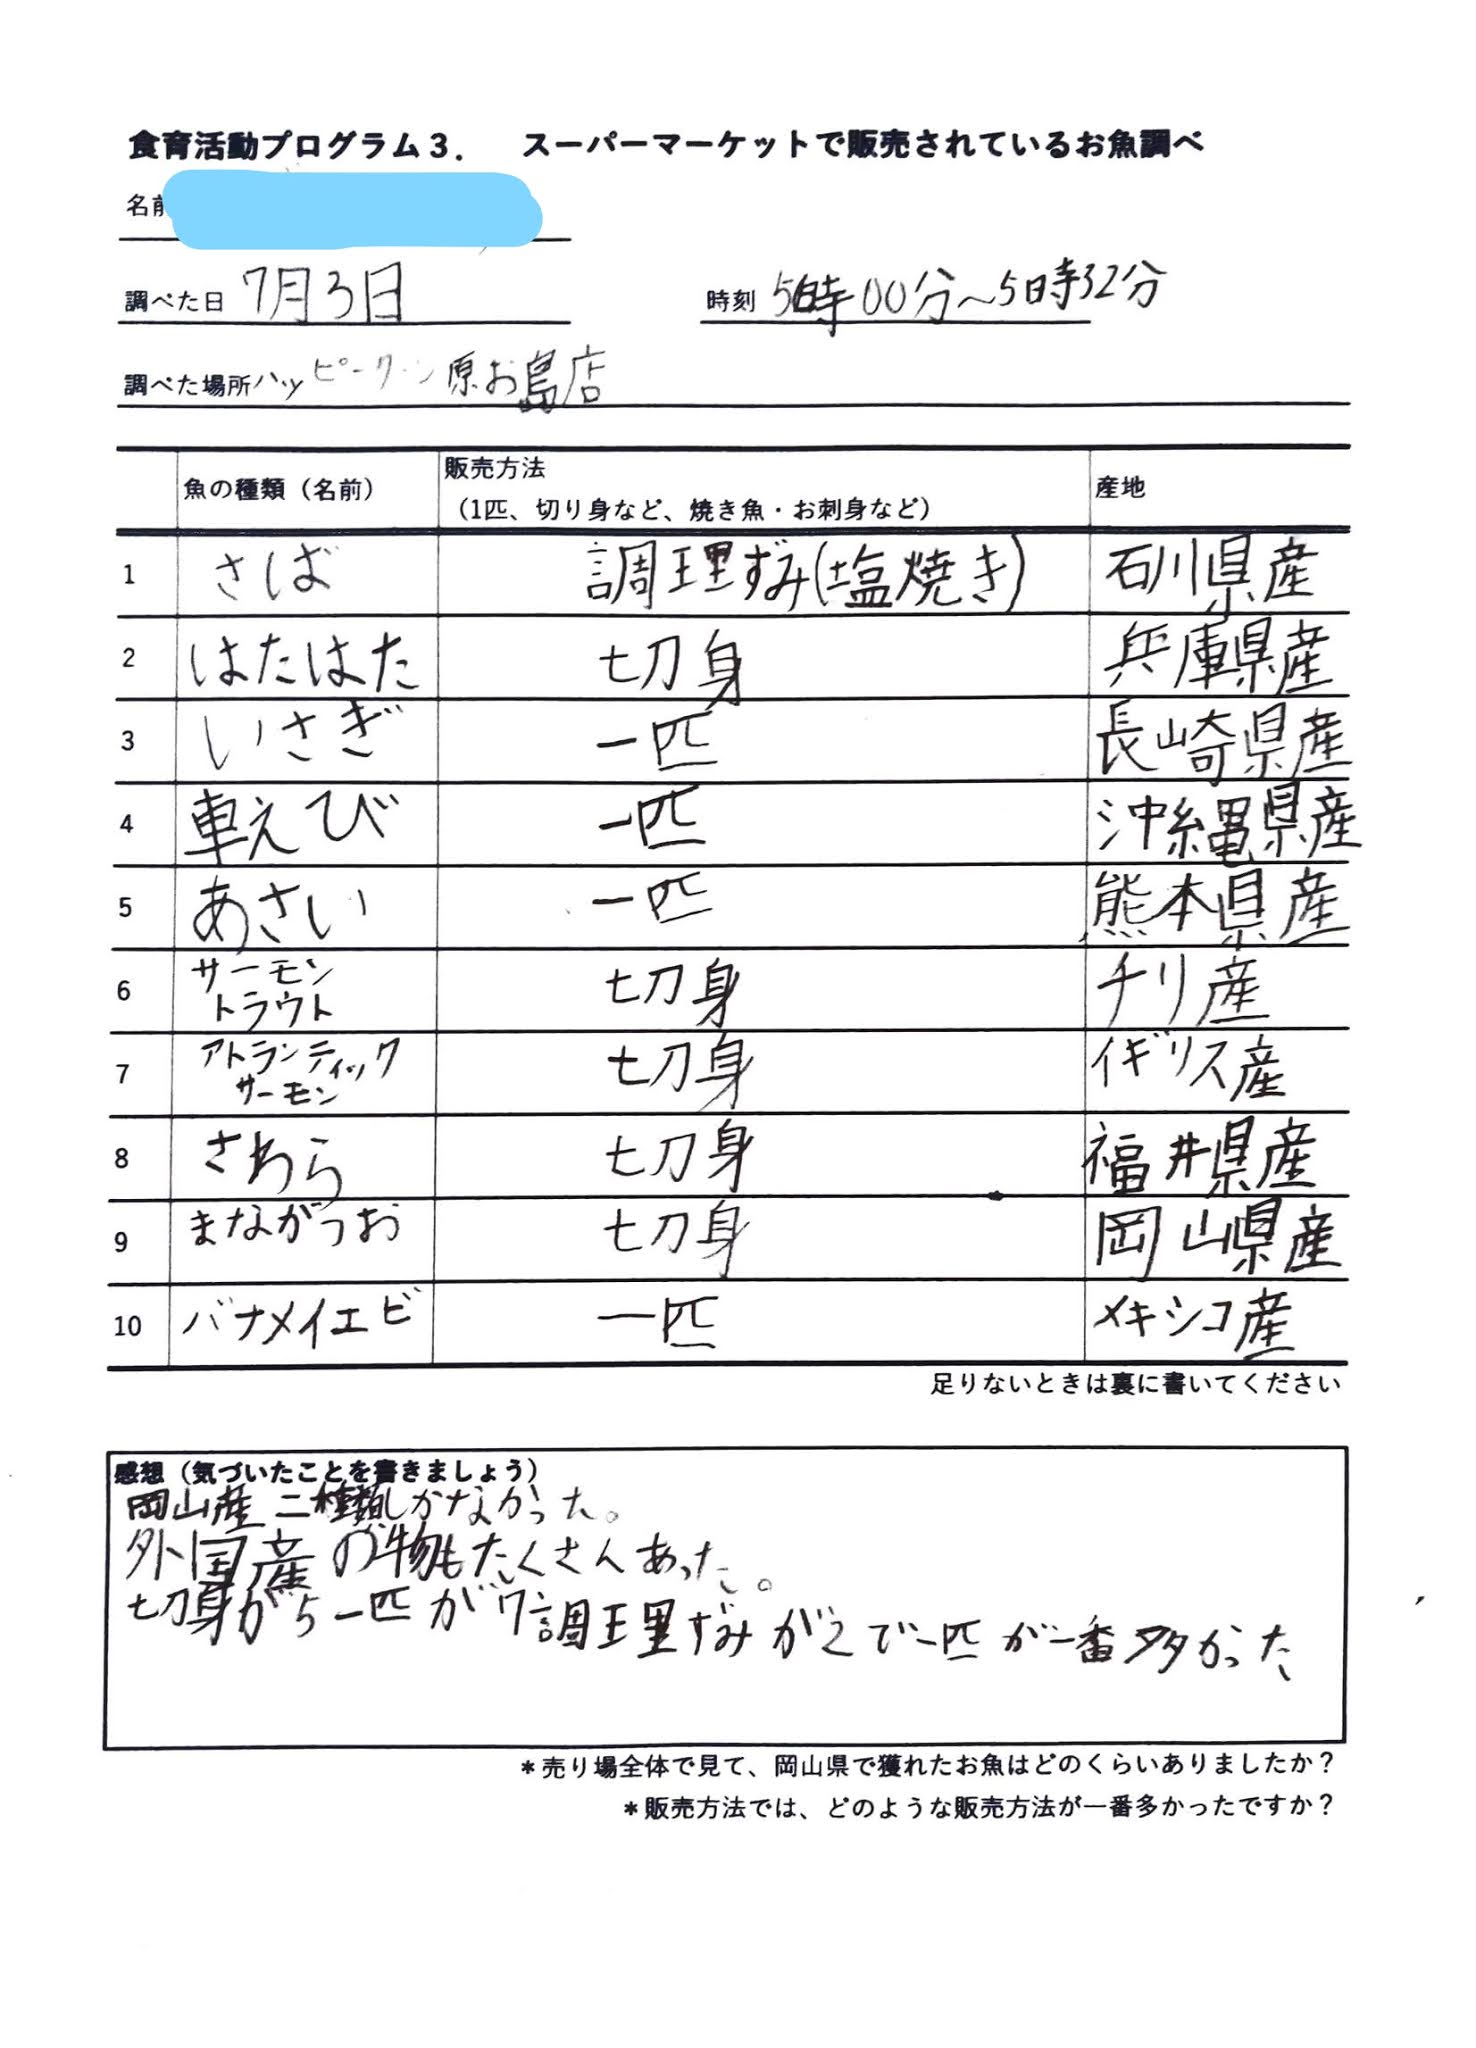 食育活動プログラム3. スーパーマーケットで販売されているお魚調べ
名前
調べた日 7月3日 時刻 5時00分~5時32分
調べた場所 ハッピータウン原お島店
魚の種類(名前) 販売方法(1匹、切り身など、焼き魚・お刺身など) 産地
1 さば 調理ずみ(塩焼き) 石川県産
2 はたはた 切身 兵庫県産
3 いさぎ 一匹 長崎県産
4 車えび 一匹 沖縄県産
5 あさい 一匹 熊本県産
6 サーモントラウト 切身 チリ産
7 アトランティックサーモン 切身 イギリス産
8 さわら 切身 福井県産
9 まながつお 切身 岡山県産
10 バナメイエビ 一匹 メキシコ産
足りないときは裏に書いてください
感想(気づいたことを書きましょう)
岡山産二種類しかなかった。
外国産の物もたくさんあった。
切身が5一匹が7調理ずみが2で一匹が一番多かった
*売り場全体で見て、岡山県で獲れたお魚はどのくらいありましたか?
*販売方法では、どのような販売方法が一番多かったですか?